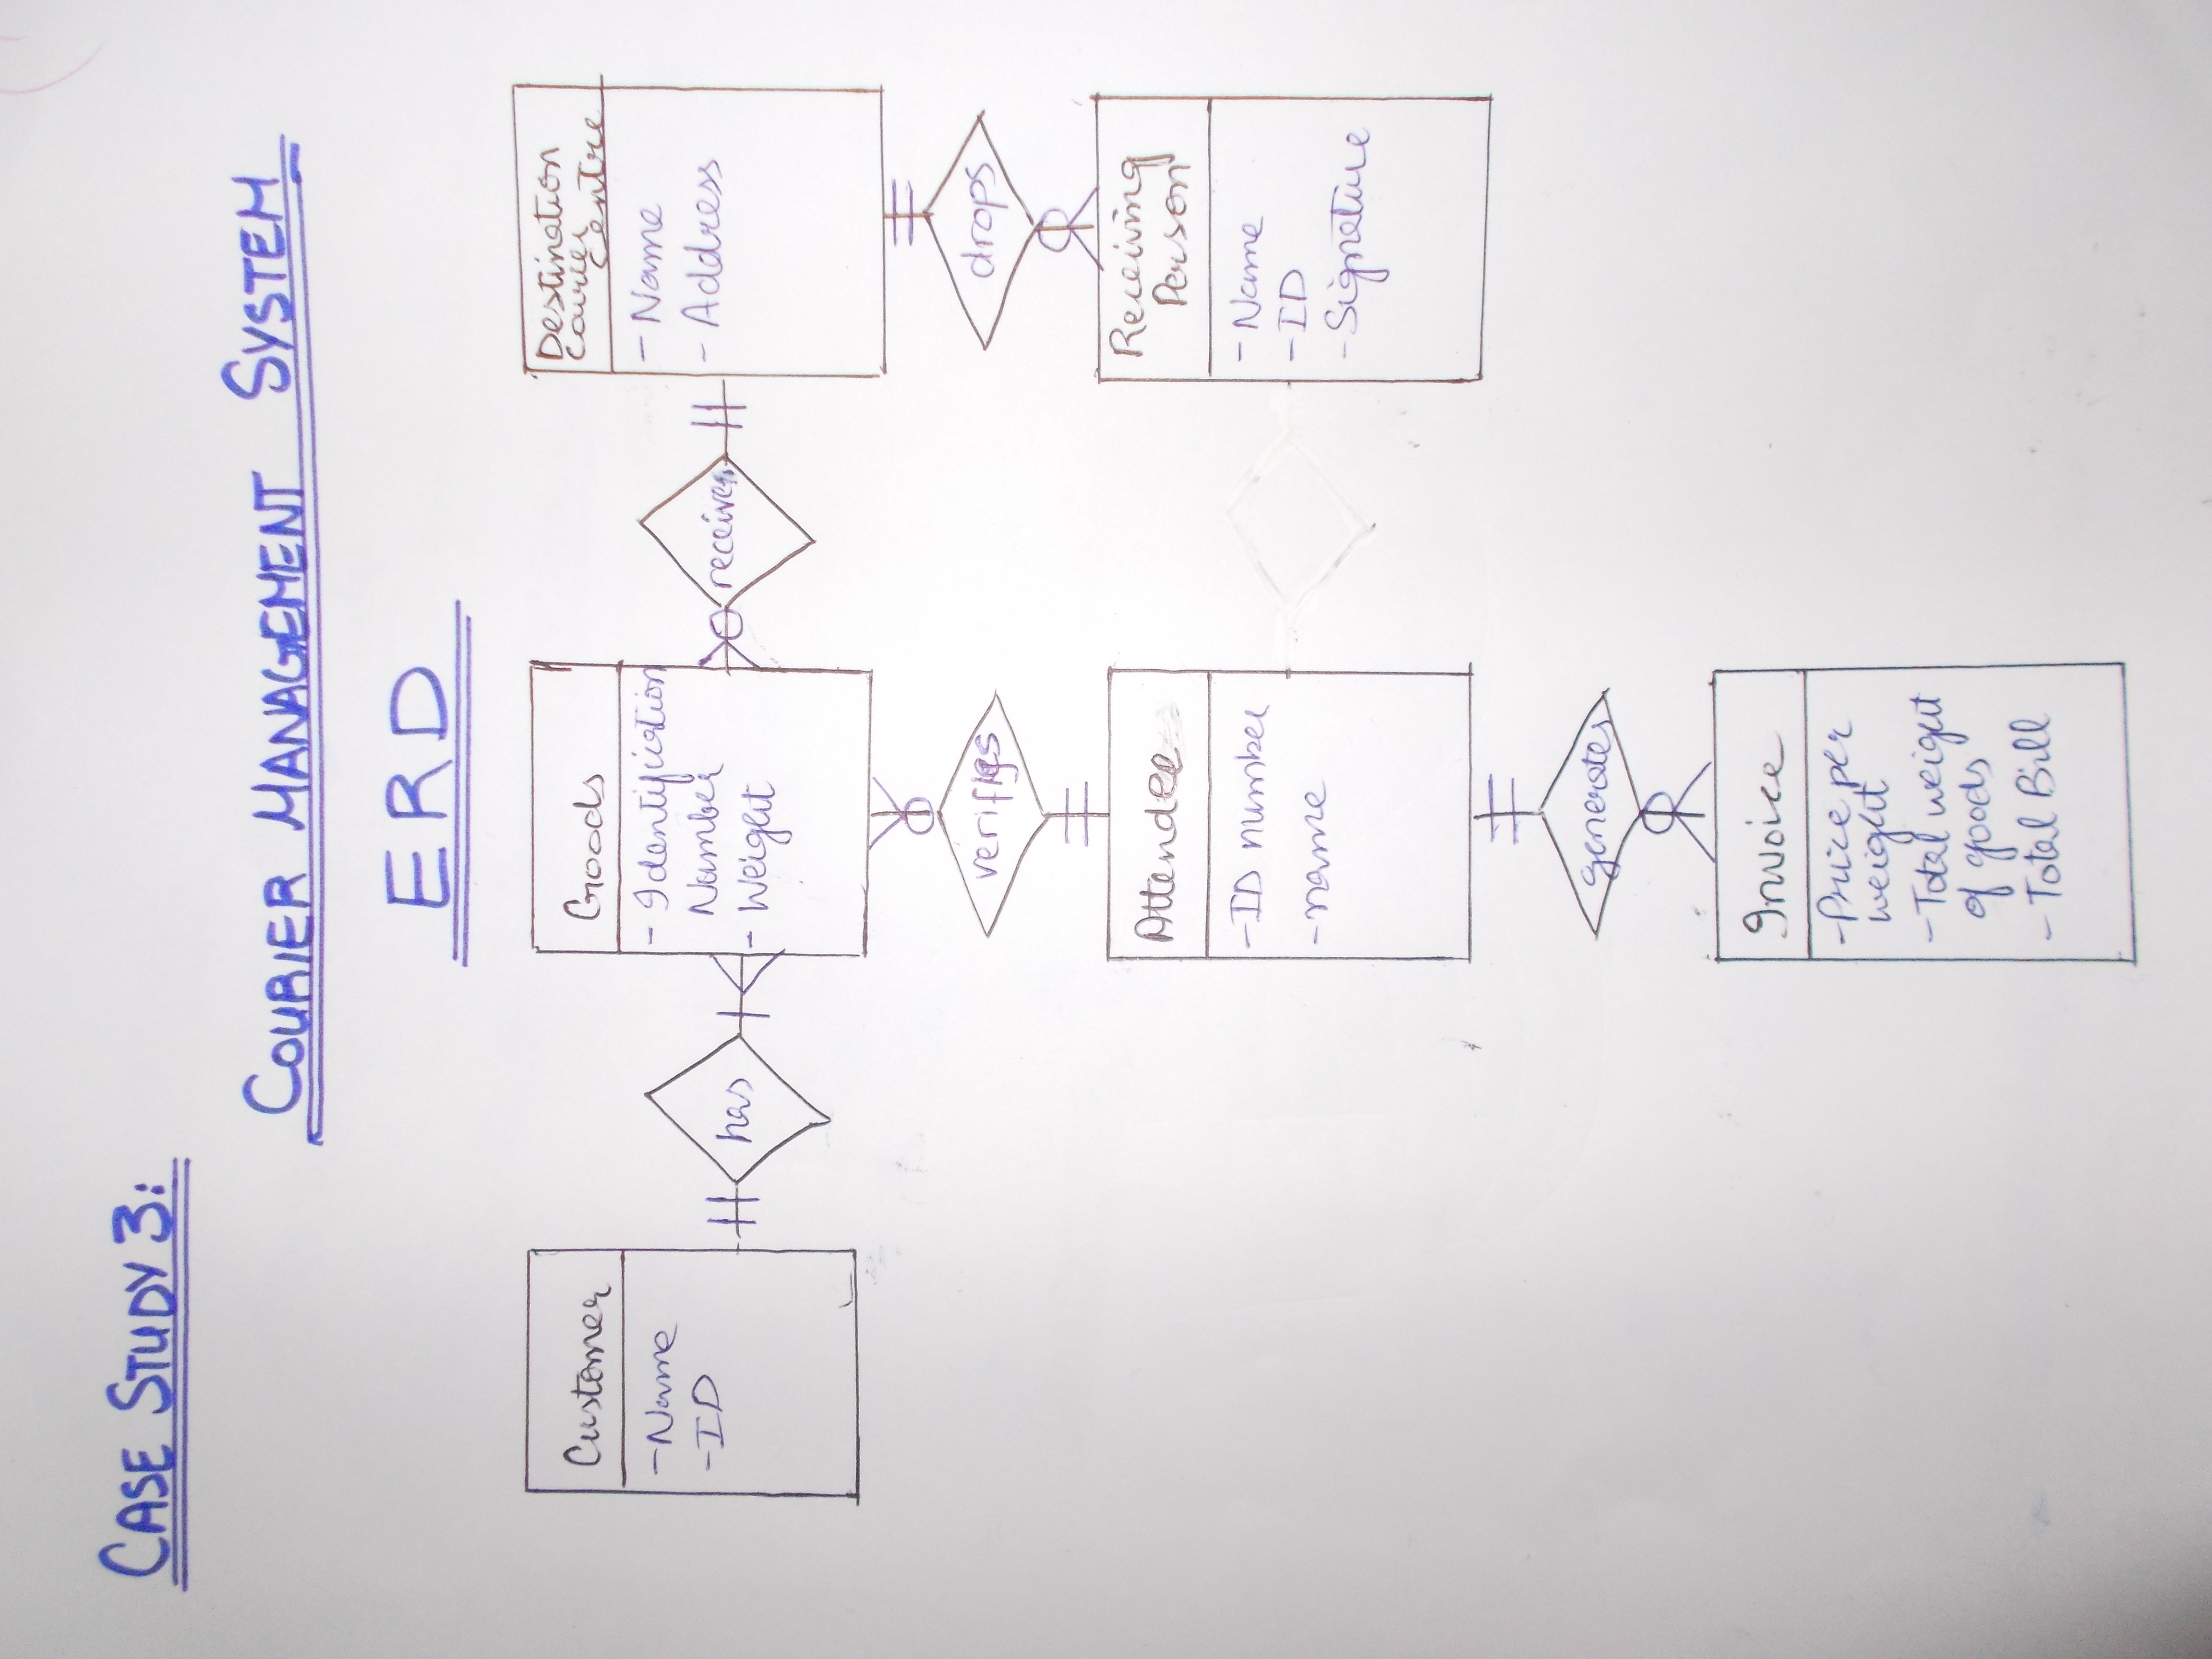 CASE STUDY 3:
COURIER MANAGEMENT SYSTEM
ERD
Customer
- Name
- ID
has
Goods
- Identification
Number
- Weight
receives
Destination
Courier
Centre
- Name
- Address
verifies
drops
Attendee
- ID number
- name
Receiving
Person
- Name
- ID
- Signature
generates
Invoice
- Price per
weight
- Total weight
of goods
- Total Bill